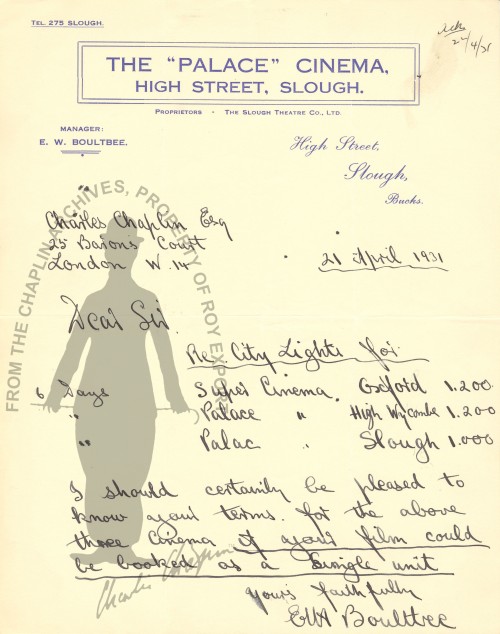 TEL. 275 SLOUGH.
Ack
22/4/31
THE "PALACE" CINEMA,
HIGH STREET, SLOUGH.
PROPRIETORS - THE SLOUGH THEATRE CO., LTD.
MANAGER:
E. W. BOULTBEE.
High Street,
Slough,
Bucks.
Charles Chaplin Esq
25 Barons Court
London W. 14
21 April 1931
Dear Sir
Re City Lights for
6 Days Super Cinema. Oxford 1.200
" Palace " High Wycombe 1.200
" Palac " Slough 1.000
I should certainly be pleased to
know your terms for the above
three Cinema if your film could
be booked as a Single unit
Yours faithfully
EW Boultbee
FROM THE CHAPLIN ARCHIVES, PROPERTY OF ROY EXPORT
Charlie Chaplin